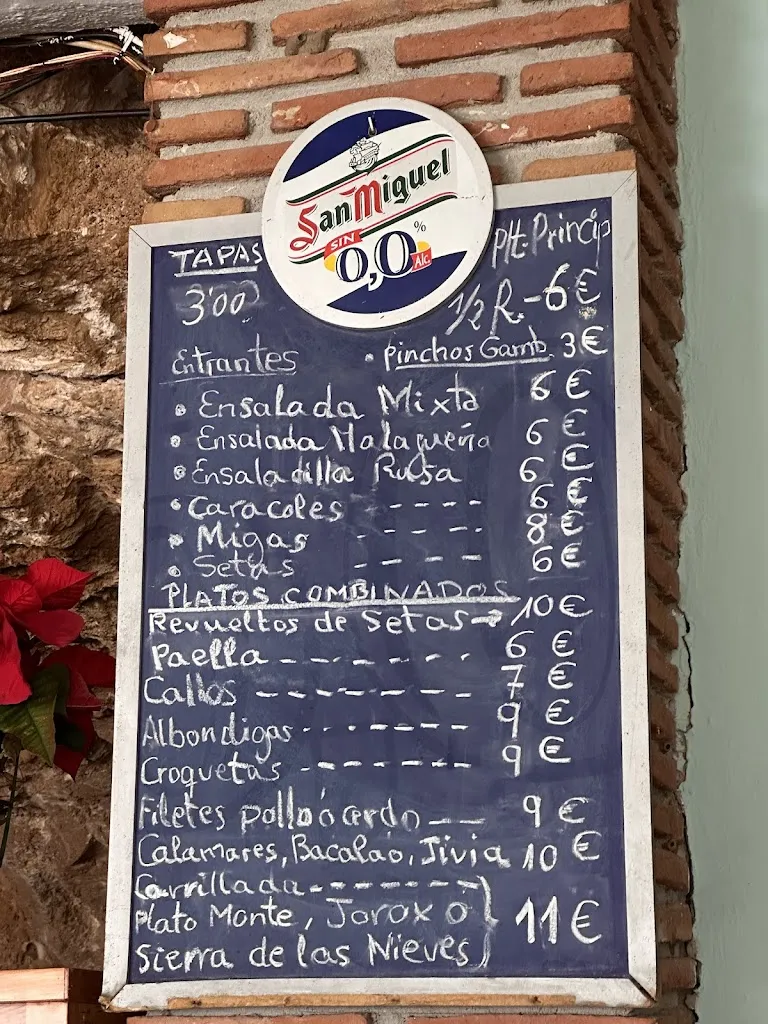 San Miguel
SIN
0,0%
Alc.
TAPAS
Plt. Princip
3'00
1/2 R.-6€
Entrantes
• Pinchos Gamb. 3€
• Ensalada Mixta 6€
• Ensalada Malagueña 6€
• Ensaladilla Rusa 6€
• Caracoles ---- 6€
• Migas ---- 8€
• Setas ---- 6€
PLATOS COMBINADOS
Revueltos de Setas→ 10€
Paella ------- 6€
Callos ------- 7€
Albondigas ------- 9€
Croquetas ------- 9€
Filetes pollo o cerdo -- 9€
Calamares, Bacalao, Jivia 10€
Carrillada -------
Plato Monte, Jorox o } 11€
Sierra de las Nieves